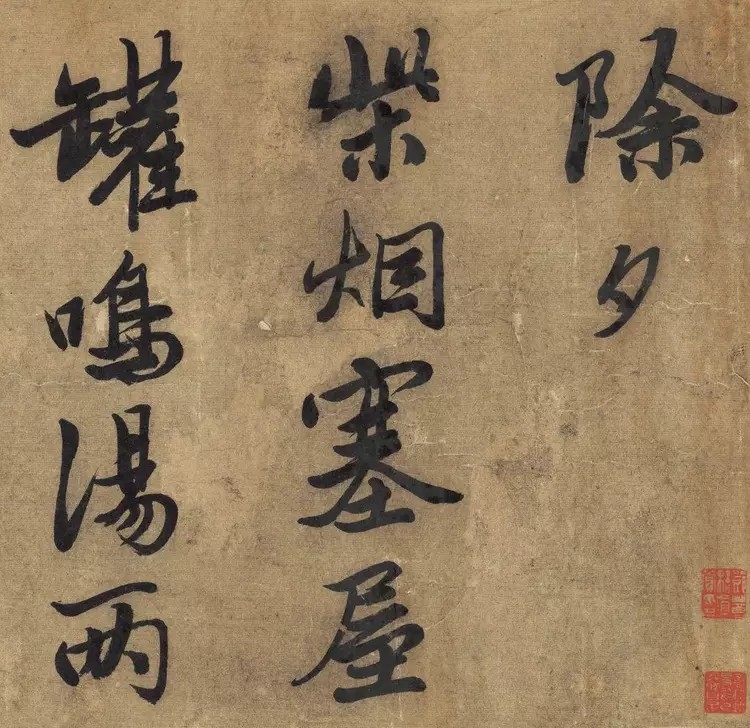 除夕
柴烟塞屋
罐鳴湯両